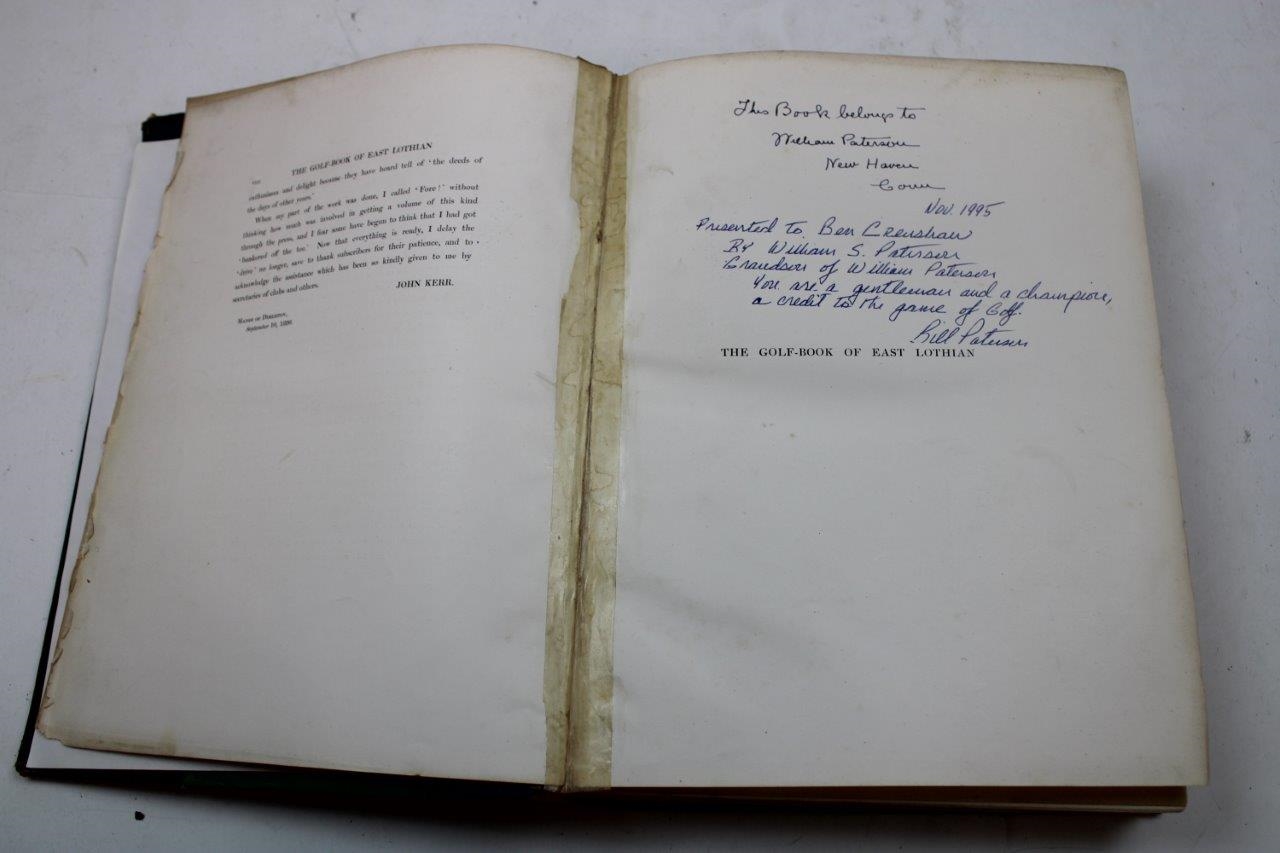 viii
THE GOLF-BOOK OF EAST LOTHIAN
enthusiasm and delight because they have heard tell of 'the deeds of
the days of other years.'
When my part of the week was done, I called 'Fore!' without
thinking how much was involved in getting a volume of this kind
through the press, and I fear some have begun to think that I had got
'bunkered off the tee.' Now that everything is ready, I delay the
'drive' no longer, save to thank subscribers for their patience, and to
acknowledge the assistance which has been so kindly given to me by
secretaries of clubs and others.
JOHN KERR.
MANSE OF DIRLETON,
September 10, 1896.
This Book belongs to
William Paterson
New Haven
Conn
Nov. 1995
Presented to Ben Crenshaw
By William S. Paterson
Grandson of William Paterson
You are a gentleman and a champion,
a credit to the game of Golf.
Bill Paterson
THE GOLF-BOOK OF EAST LOTHIAN